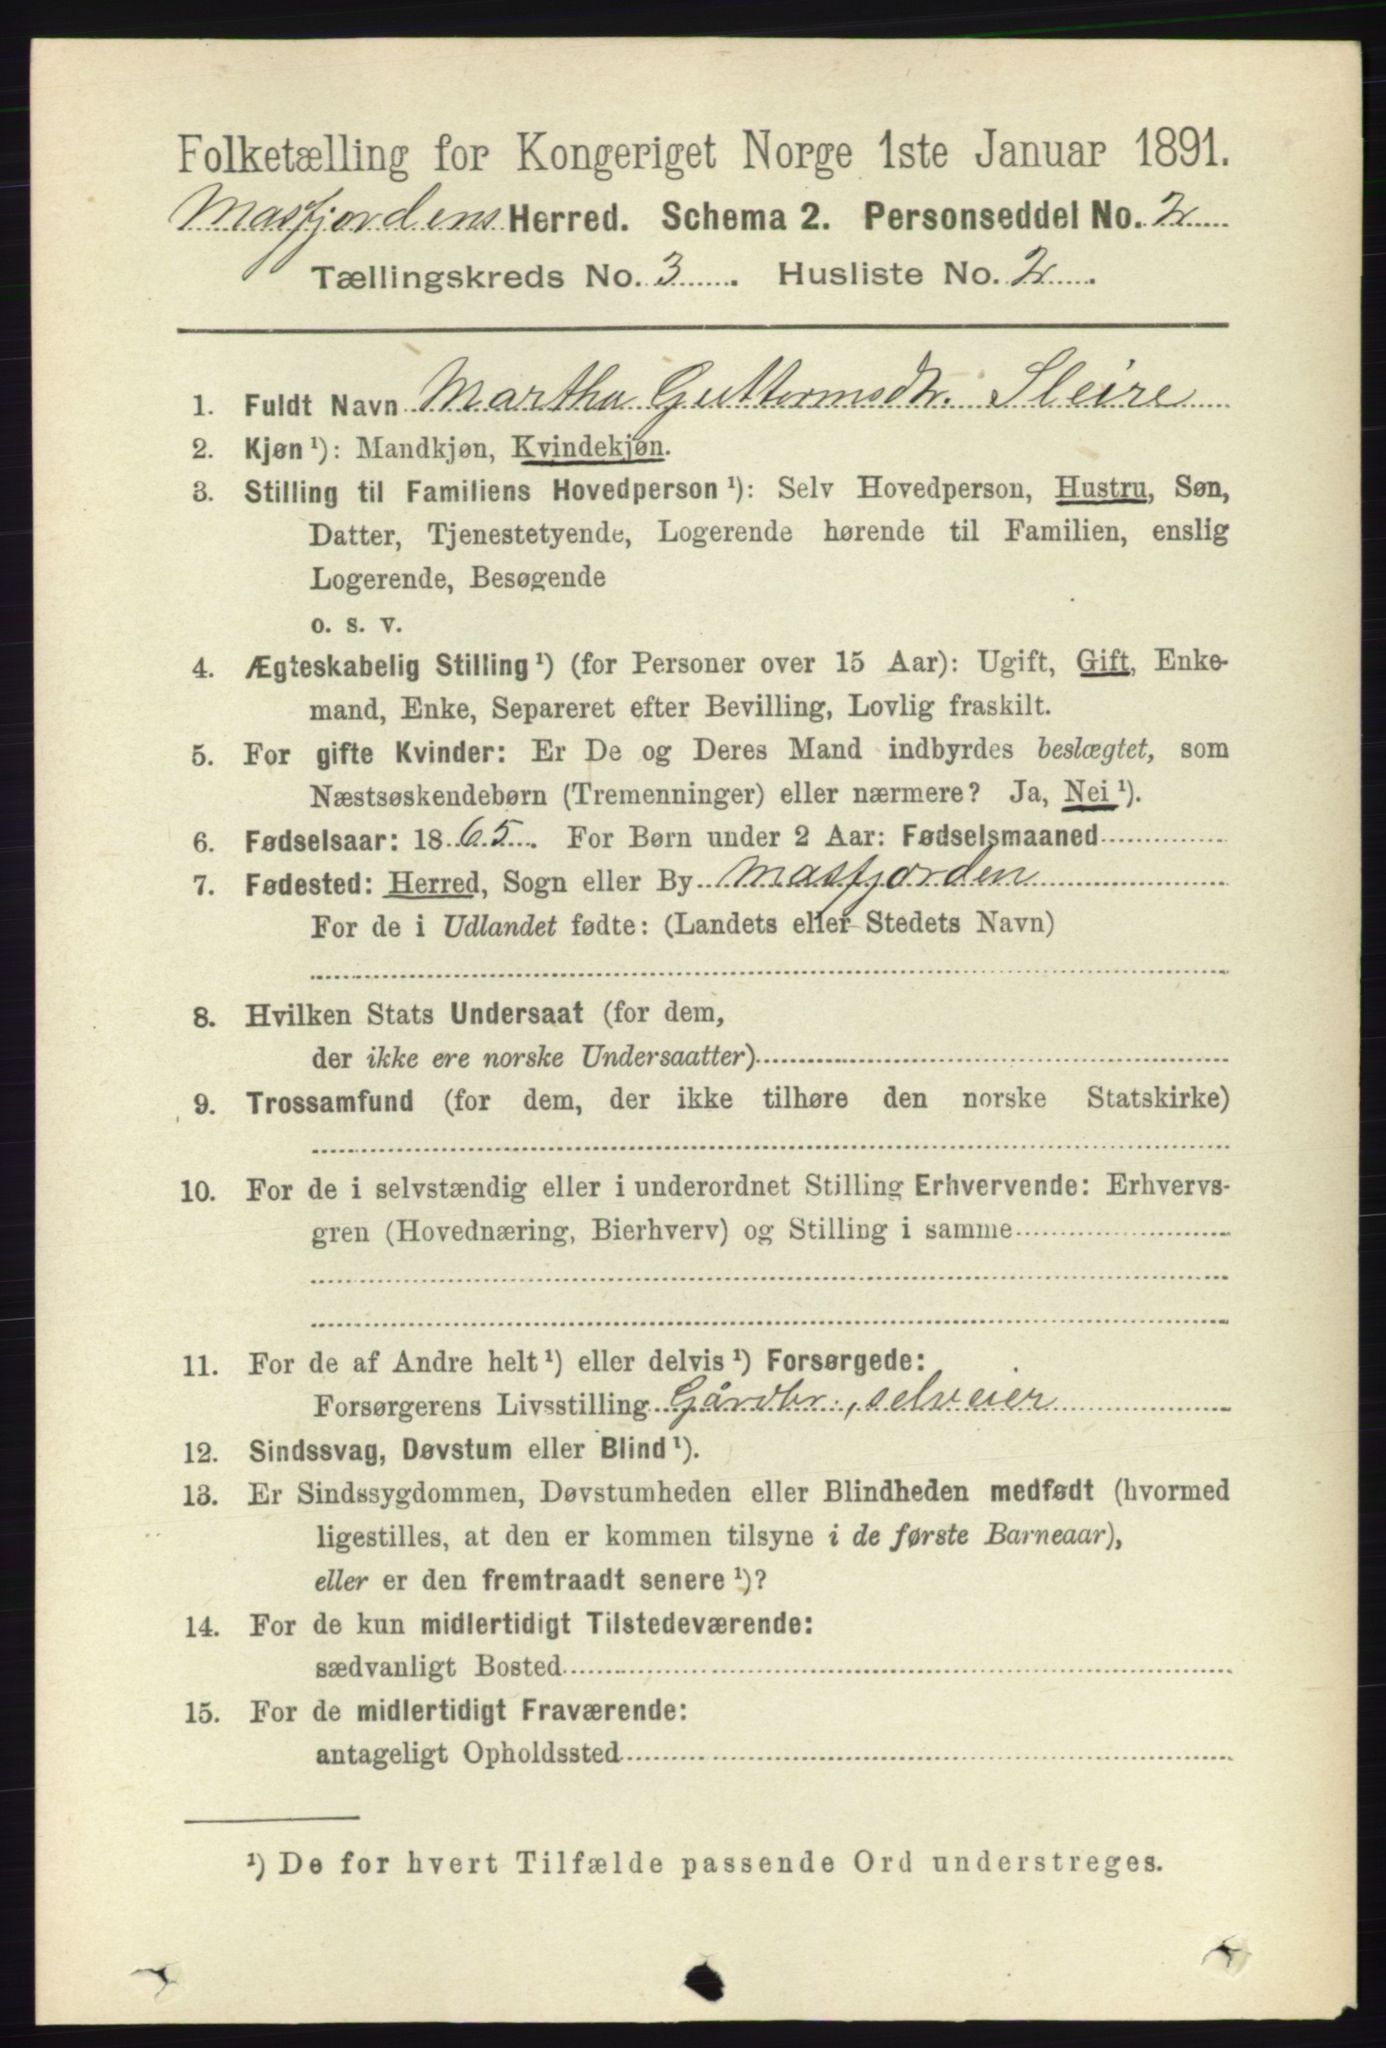 Folketælling for Kongeriget Norge 1ste Januar 1891.
Masfjordens Herred. Schema 2. Personseddel No. 2
Tællingskreds No. 3. Husliste No. 2.
1. Fuldt Navn Martha Guttormsdtr. Sleire
2. Kjøn ¹): Mandkjøn, Kvindekjøn.
3. Stilling til Familiens Hovedperson ¹): Selv Hovedperson, Hustru, Søn,
Datter, Tjenestetyende, Logerende hørende til Familien, enslig
Logerende, Besøgende
o. s. v.
4. Ægteskabelig Stilling ¹) (for Personer over 15 Aar): Ugift, Gift, Enke-
mand, Enke, Separeret efter Bevilling, Lovlig fraskilt.
5. For gifte Kvinder: Er De og Deres Mand indbyrdes beslægtet, som
Næstsøskendebørn (Tremenninger) eller nærmere? Ja, Nei ¹).
6. Fødselsaar: 1865. For Børn under 2 Aar: Fødselsmaaned
7. Fødested: Herred, Sogn eller By Masfjorden
For de i Udlandet fødte: (Landets eller Stedets Navn)
8. Hvilken Stats Undersaat (for dem,
der ikke ere norske Undersaatter)
9. Trossamfund (for dem, der ikke tilhøre den norske Statskirke)
10. For de i selvstændig eller i underordnet Stilling Erhvervende: Erhvervs-
gren (Hovednæring, Bierhverv) og Stilling i samme
11. For de af Andre helt ¹) eller delvis ¹) Forsørgede:
Forsørgerens Livsstilling Gårdbr., selveier
12. Sindssvag, Døvstum eller Blind ¹).
13. Er Sindssygdommen, Døvstumheden eller Blindheden medfødt (hvormed
ligestilles, at den er kommen tilsyne i de første Barneaar),
eller er den fremtraadt senere ¹)?
14. For de kun midlertidigt Tilstedeværende:
sædvanligt Bosted
15. For de midlertidigt Fraværende:
antageligt Opholdssted
¹) De for hvert Tilfælde passende Ord understreges.